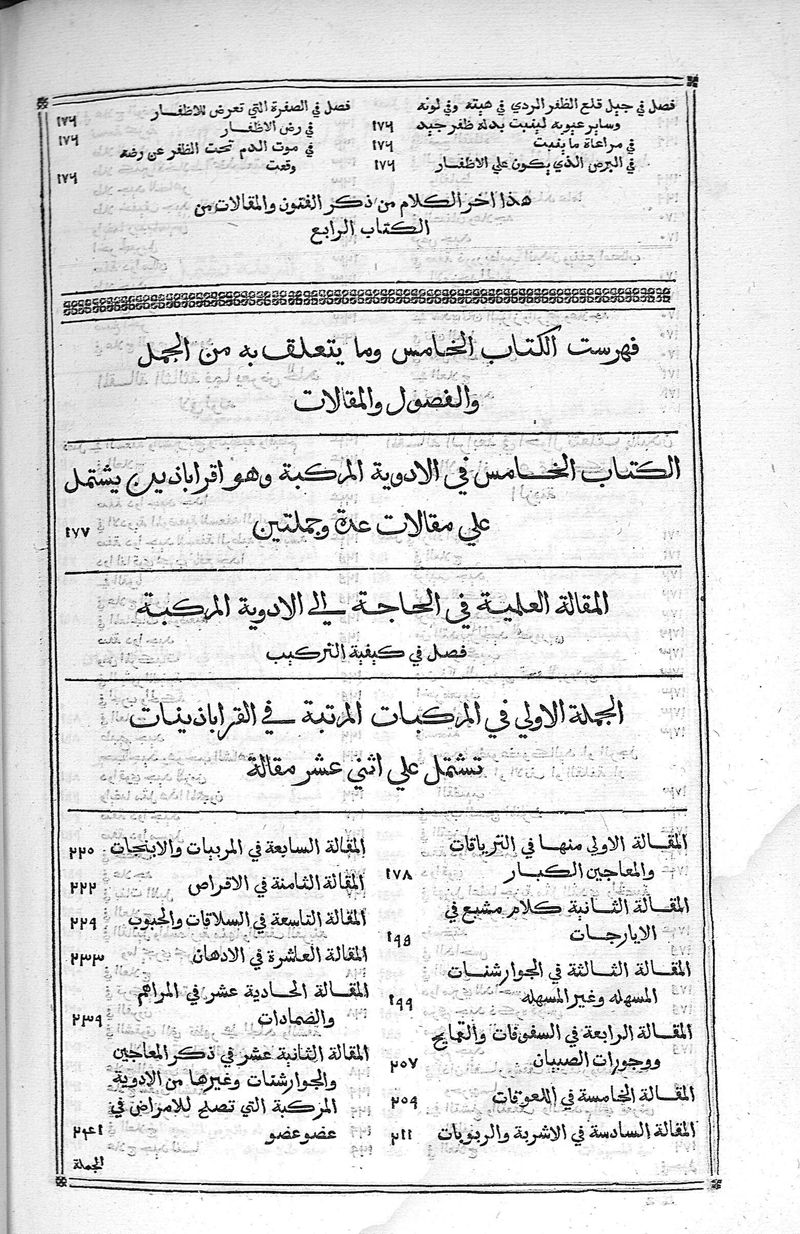 فصل في حيل قلع الظفر الردي في هيته وفي لونه
وساير عيوبه لينبت بدله ظفر جيد ١٧٦
في مراعاة ما ينبت ١٧٦
في البرص الذي يكون علي الاظفار ١٧٦
فصل في الصفرة التي تعرض للاظفار ١٧٦
في رض الاظفار ١٧٦
في موت الدم تحت الظفر عن رضة
وقعت ١٧٦
هذا اخر الكلام من ذكر الفنون والمقالات من
الكتاب الرابع
فهرست الكتاب الخامس وما يتعلق به من الجمل
والفصول والمقالات
الكتاب الخامس في الادوية المركبة وهو اقراباذين يشتمل
علي مقالات عدة وجملتين ١٧٧
المقالة العلمية في الحاجة الي الادوية المركبة
فصل في كيفية التركيب
الجملة الاولي في المركبات المرتبة في القراباذينات
تشتمل علي اثني عشر مقالة
المقالة الاولي منها في الترياقات
والمعاجين الكبار ١٧٨
المقالة الثانية كلام مشبع في
الايارجات ١٩٥
المقالة الثالثة في الجوارشنات
المسهله وغير المسهله ١٩٩
المقالة الرابعة في السفوفات والقمايح
ووجورات الصبيان ٢٠٧
المقالة الخامسة في اللعوقات ٢٠٩
المقالة السادسة في الاشربة والربوبات ٢١١
المقالة السابعة في المربيات والانبجات ٢٢٠
المقالة الثامنة في الاقراص ٢٢٢
المقالة التاسعة في السلاقات والحبوب ٢٢٩
المقالة العاشرة في الادهان ٢٣٣
المقالة الحادية عشر في المراهم
والضمادات ٢٣٩
المقالة الثانية عشر في ذكر المعاجين
والجوارشنات وغيرها من الادوية
المركبة التي تصلح للامراض في
عضو عضو ٢٤٦
الجملة